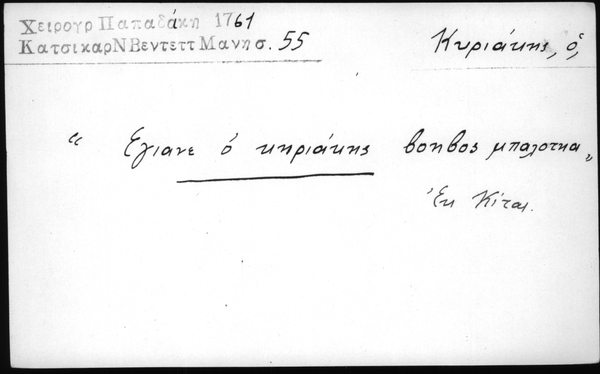 Χειρογρ Παπαδάκη 1761
ΚατσικαρΝΒεντεττΜανησ. 55
Κυριάκης, ὁ,
" Εγιανε ὁ κηριάκης βοηβος μπαλοτηα "
Ἐκ Κίτας.